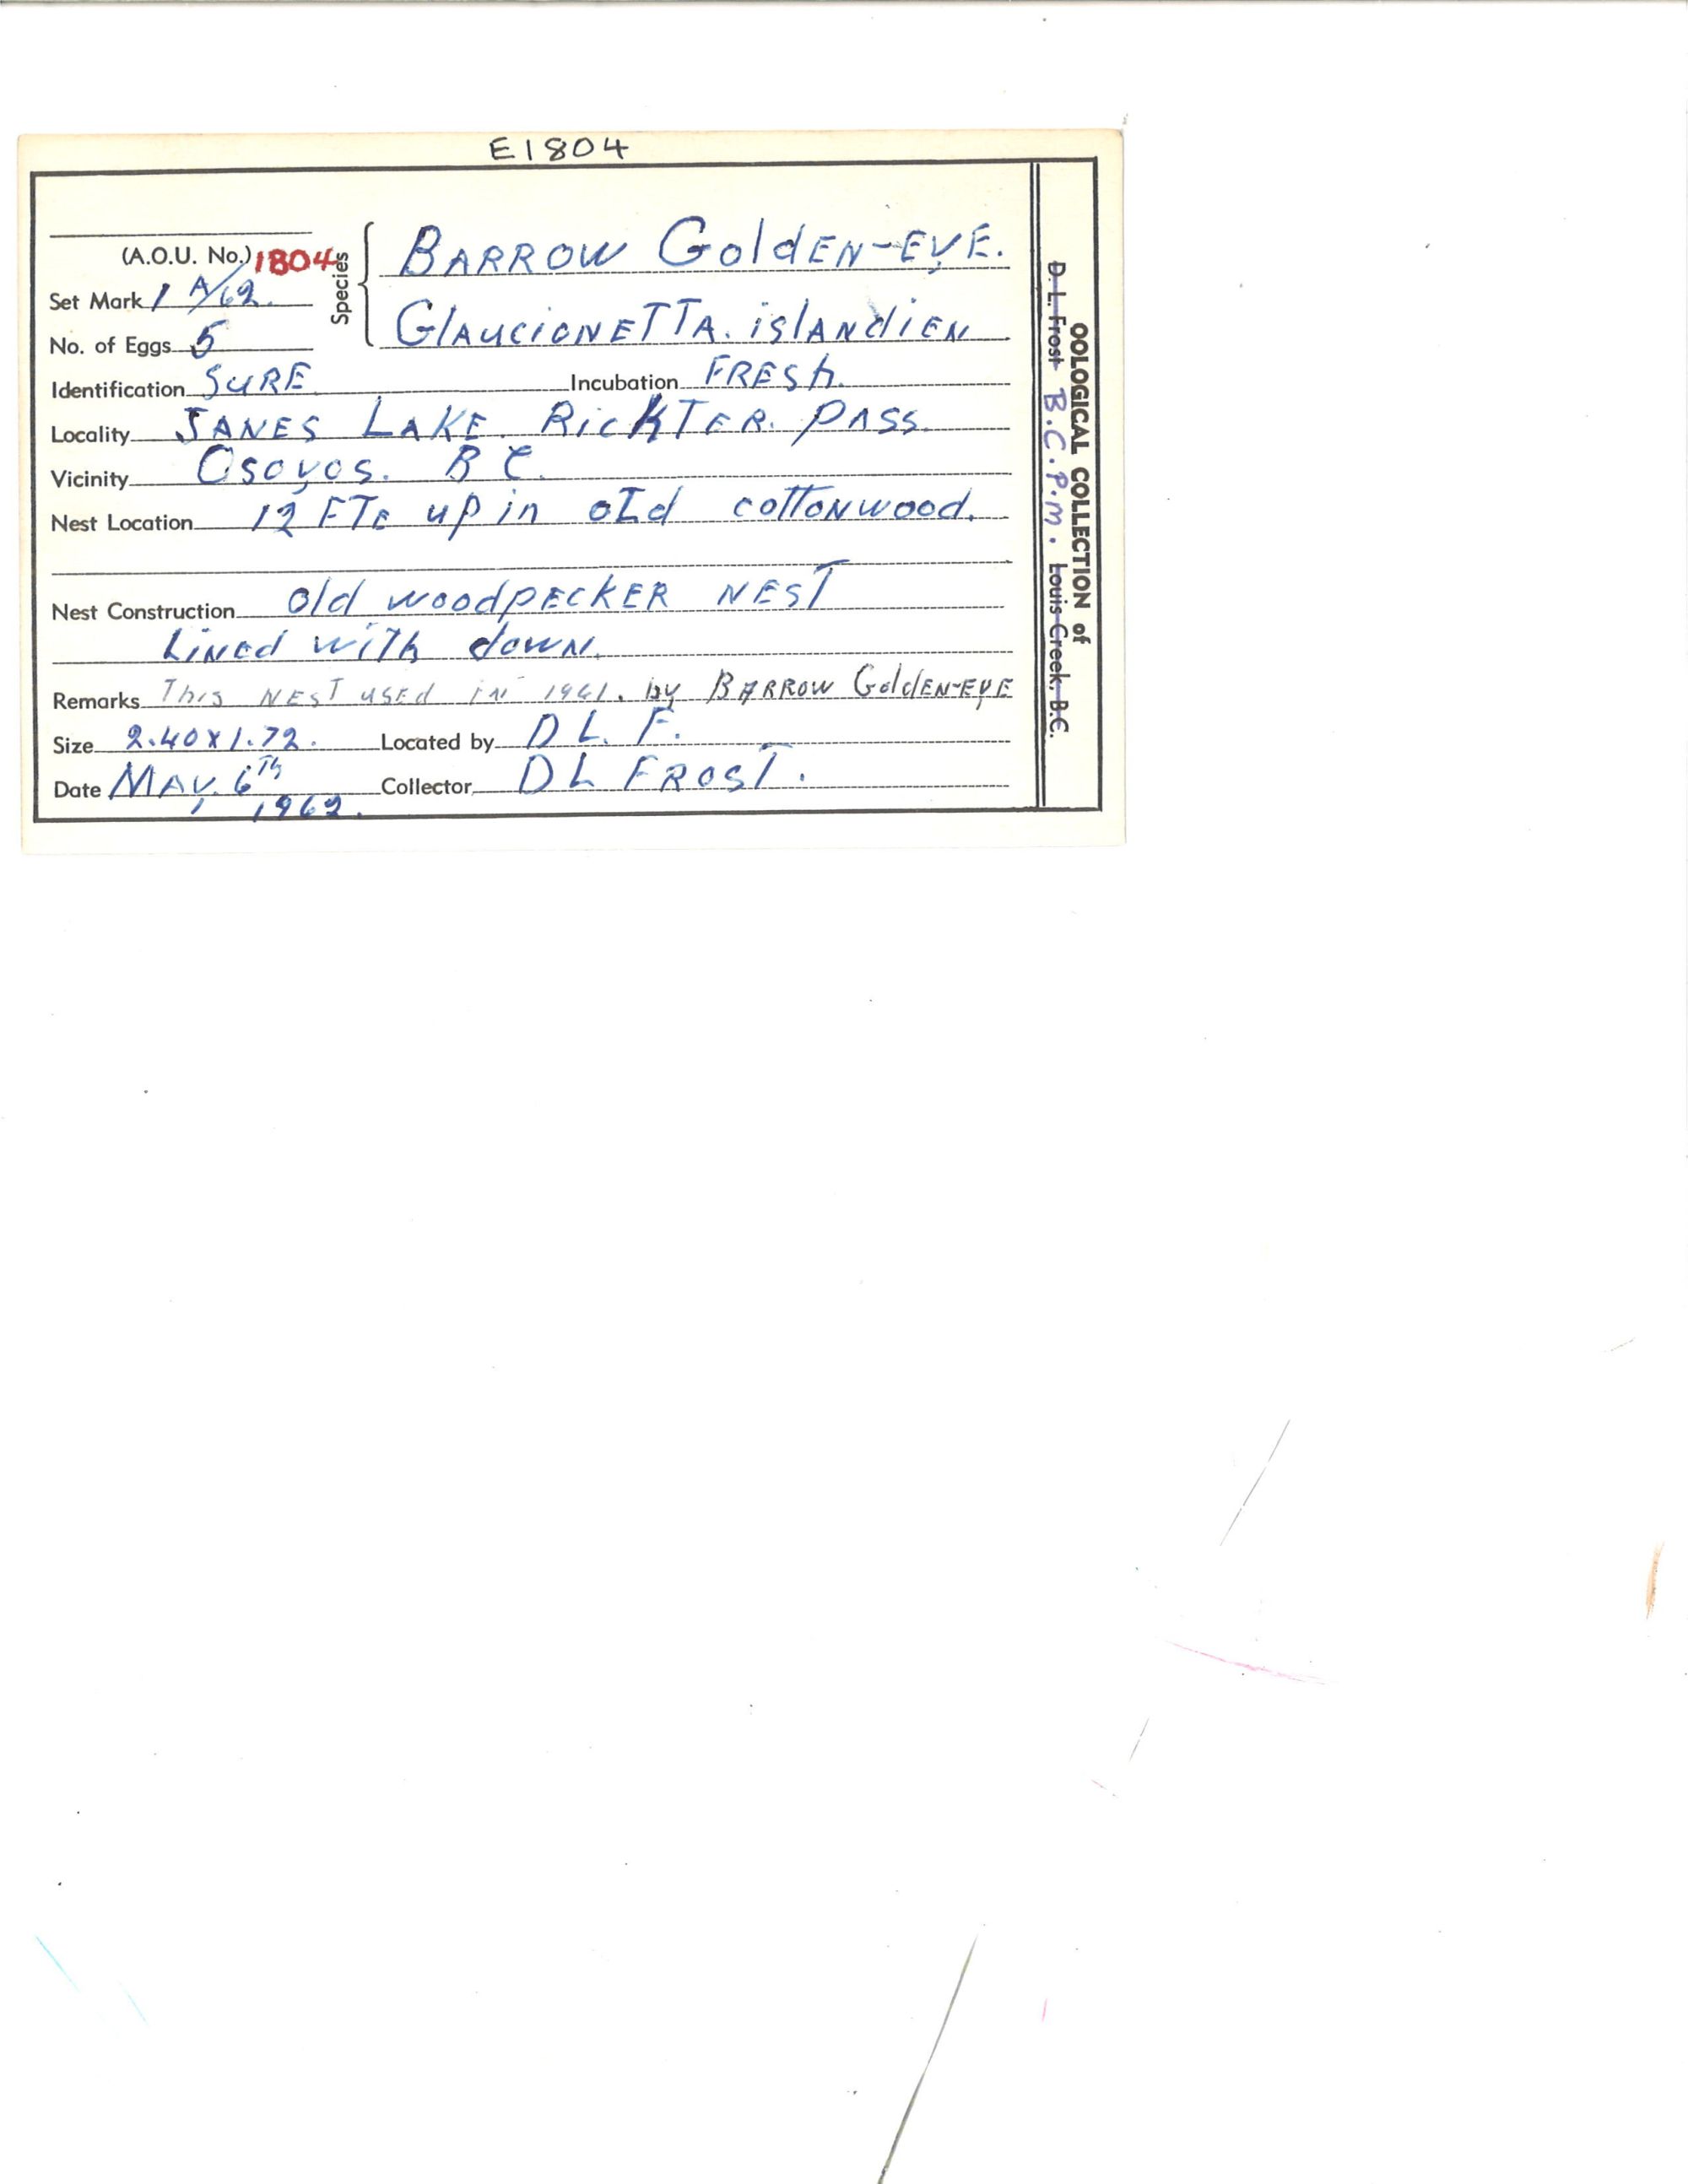 E1804
(A.O.U. No.) 1804
Species
BARROW GOldEN-EYE.
GlAUCIONETTA. islANdiEN
Set Mark 1 A/62.
No. of Eggs 5
Identification SURE. Incubation FRESh.
Locality JANES LAKE. RicKTER. PASS.
Vicinity Osoyos. B C.
Nest Location 12 FTE up in old cottonwood.
Nest Construction old woodpECKER NEST
Lined with down.
Remarks This NEST used IN 1961. by BARROW GoldEN-EYE
Size 2.40 x 1.72. Located by D L. F.
Date MAY. 6Th Collector D L FROST.
1962.
OOLOGICAL COLLECTION of
D. L. Frost B.C.P.M. Louis Creek, B.C.